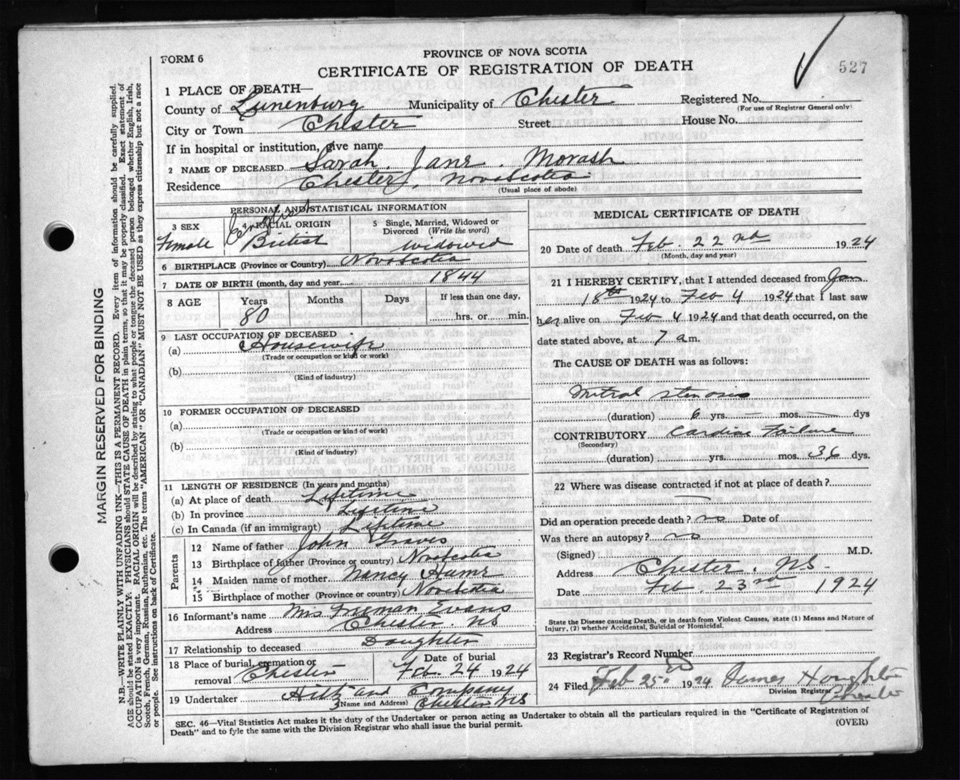 FORM 6
PROVINCE OF NOVA SCOTIA
CERTIFICATE OF REGISTRATION OF DEATH
527
1 PLACE OF DEATH—
County of Lunenburg Municipality of Chester Registered No.
(For use of Registrar General only)
City or Town Chester Street House No.
If in hospital or institution, give name
2 NAME OF DECEASED Sarah Jane Morash
Residence Chester, Nova Scotia
(Usual place of abode)
PERSONAL AND STATISTICAL INFORMATION
3 SEX 4 RACIAL ORIGIN 5 Single, Married, Widowed or Divorced (Write the word)
Female English British widowed
6 BIRTHPLACE (Province or Country) Nova Scotia
7 DATE OF BIRTH (month, day and year) 1844
8 AGE Years Months Days If less than one day,
80 hrs. or min.
9 LAST OCCUPATION OF DECEASED
(a) Housewife
(Trade or occupation or kind or work)
(b)
(Kind of industry)
10 FORMER OCCUPATION OF DECEASED
(a)
(Trade or occupation or kind or work)
(b)
(Kind of industry)
11 LENGTH OF RESIDENCE (In years and months)
(a) At place of death Lifetime
(b) In province Lifetime
(c) In Canada (if an immigrant) Lifetime
Parents
12 Name of father John Graves
13 Birthplace of father (Province or country) Nova Scotia
14 Maiden name of mother Nancy
15 Birthplace of mother (Province or country) Nova Scotia
16 Informant's name Mrs Freeman Evans
Address Chester NS
17 Relationship to deceased Daughter
18 Place of burial, cremation or removal Chester Date of burial Feb. 24 1924
19 Undertaker and Company
(Name and Address) Chester NS
MEDICAL CERTIFICATE OF DEATH
20 Date of death Feb. 22nd 1924
(Month, day and year)
21 I HEREBY CERTIFY, that I attended deceased from Jan
18th 1924 to Feb 4 1924 that I last saw
her alive on Feb 4 1924 and that death occurred, on the
date stated above, at 7 am.
The CAUSE OF DEATH was as follows:
Mitral stenosis
(duration) 6 yrs. — mos. — dys
CONTRIBUTORY Cardiac Failure
(Secondary)
(duration) yrs. mos. 36 dys.
22 Where was disease contracted if not at place of death?
Did an operation precede death? no Date of
Was there an autopsy? no
(Signed) M.D.
Address Chester. NS.
Date Feb. 23rd 1924
State the Disease causing Death, or in death from Violent Causes, state (1) Means and Nature of
Injury, (2) whether Accidental, Suicidal or Homicidal.
23 Registrar's Record Number
24 Filed Feb 25 1924 James Houghton
Division Registrar
Chester
SEC. 46—Vital Statistics Act makes it the duty of the Undertaker or person acting as Undertaker to obtain all the particulars required in the "Certificate of Registration of
Death" and to fyle the same with the Division Registrar who shall issue the burial permit.
(OVER)
MARGIN RESERVED FOR BINDING
N.B.—WRITE PLAINLY WITH UNFADING INK—THIS IS A PERMANENT RECORD. Every item of information should be carefully supplied.
AGE should be stated EXACTLY. PHYSICIANS should STATE CAUSE OF DEATH in plain terms, so that it may be properly classified. Exact statement of
OCCUPATION is very important. RACIAL ORIGIN will be described by stating to what people or tongue the deceased person belonged whether English, Irish,
Scotch, French, German, Russian, Ruthenian, etc. The terms "AMERICAN" OR "CANADIAN" MUST NOT BE USED as they express citizenship but not a race
or people. See instructions on back of Certificate.